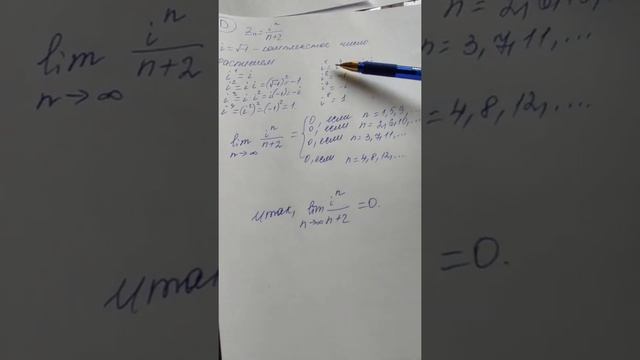 1) Zₙ = iⁿ/(n+2)
i = √-1 - комплексное число
i¹ = i
i² = i·i = (√-1)² = -1
i³ = i²·i = i(-1) = -i
i⁴ = (i²)² = (-1)² = 1
i⁸ = 1
lim n→∞ iⁿ/(n+2) = { 0, если n = 1, 5, 9, ...
0, если n = 2, 6, 10, ...
0, если n = 3, 7, 11, ...
0, если n = 4, 8, 12, ...
Итак, lim n→∞ iⁿ/(n+2) = 0.
lim n→∞ iⁿ/(n+2)
n = 2, 6, 10, ...
n = 3, 7, 11, ...
= 4, 8, 12, ...
Итак
= 0.